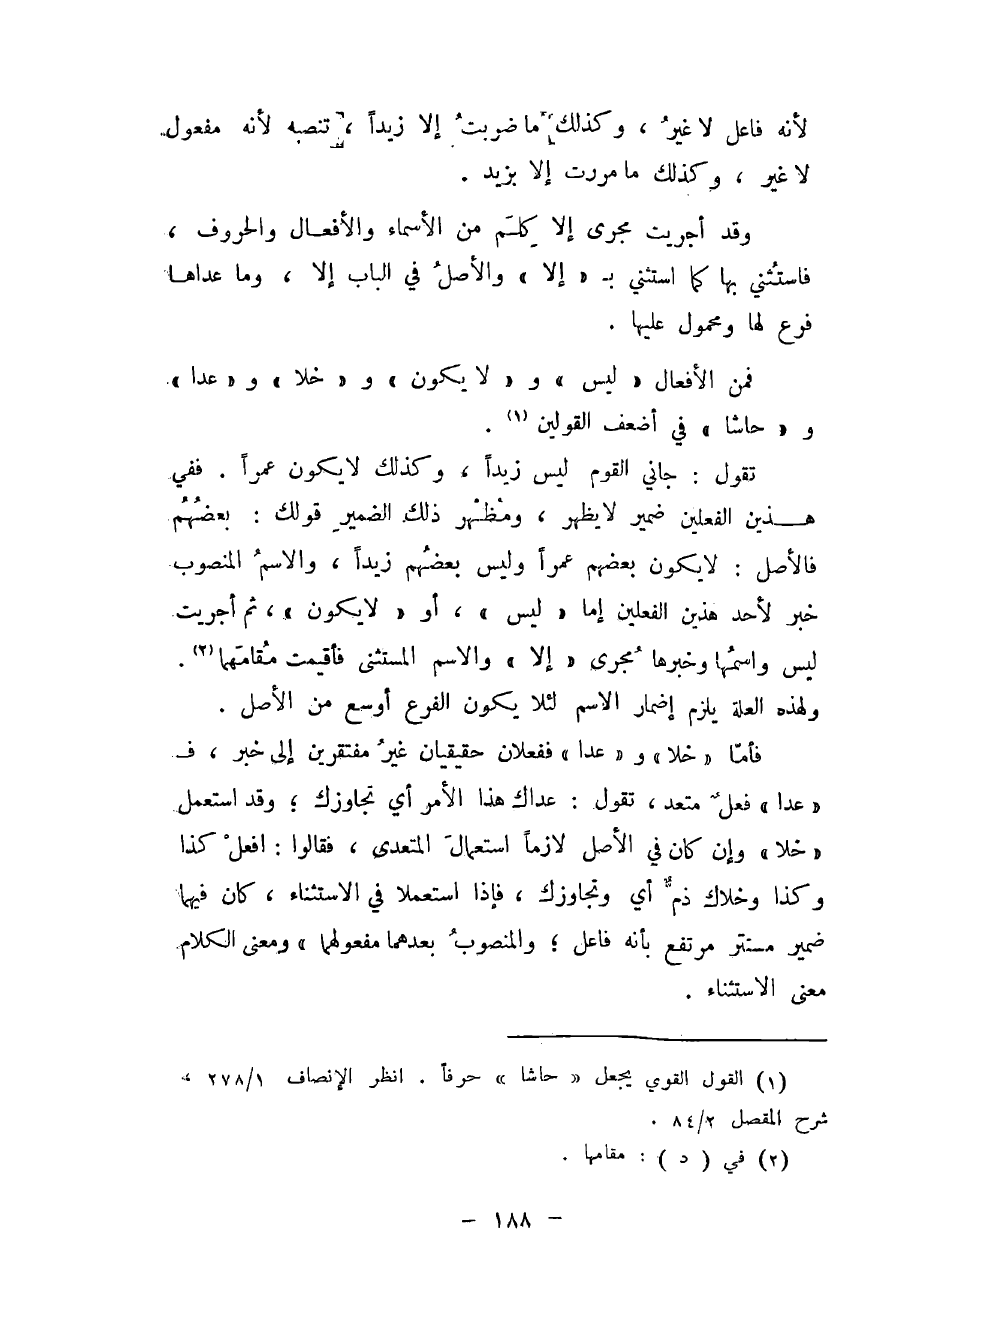 لأنه فاعل لا غيرُ ، وكذلك ما ضربتُ إلا زيداً ، تنصبه لأنه مفعول
لا غير ، وكذلك ما مررت إلا بزيد .
وقد أجريت مجرى إلا كلَم من الأسماء والأفعـال والحروف ،
فاستُثني بها كما استثني بـ « إلا » والأصلُ في الباب إلا ، وما عداهـا
فرع لها ومحمول عليها .
فمن الأفعال « ليس » و « لا يكون » و « خلا » و « عدا »
و « حاشا » في أضعف القولين (١) .
تقول : جاني القوم ليس زيداً ، وكذلك لايكون عمراً . ففي
هـــذين الفعلين ضمير لايظهر ، ومُظهَر ذلك الضمير قولك : بعضُهُم
فالأصل : لايكون بعضهم عمراً وليس بعضُهم زيداً ، والاسمُ المنصوب
خبر لأحد هذين الفعلين إما « ليس » ، أو « لايكون » ، ثم أجريت
ليس واسمُها وخبرها مُجرى « إلا » والاسم المستثنى فأقيمت مُقامَهما (٢) .
ولهذه العلة يلزم إضمار الاسم لئلا يكون الفرع أوسع من الأصل .
فأمّا « خلا » و « عدا » ففعلان حقيقيان غيرُ مفتقرين إلى خبر ، فـ
« عدا » فعلٌ متعد ، تقول : عداك هذا الأمر أي تجاوزك ؛ وقد استعمل
« خلا » وإن كان في الأصل لازماً استعمالَ المتعدى ، فقالوا : افعلْ كذا
وكذا وخلاك ذمٌّ أي وتجاوزك ، فإذا استعملا في الاستثناء ، كان فيهما
ضمير مستتر مرتفع بأنه فاعل ؛ والمنصوبُ بعدهما مفعولهما » ومعنى الكلام
معنى الاستثناء .
(١) القول القوي يجعل « حاشا » حرفاً . انظر الإنصاف ٢٧٨/١ ،
شرح المفصل ٨٤/٢ .
(٢) في ( د ) : مقامها .
- ١٨٨ -